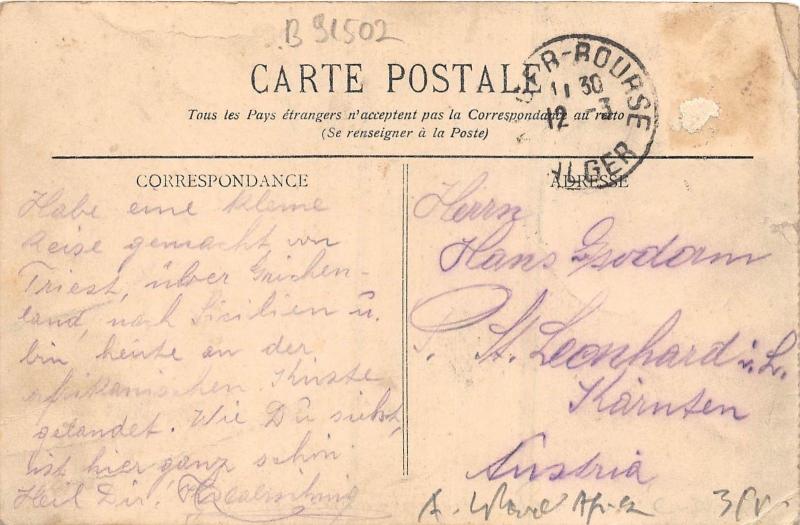 B 31502
CARTE POSTALE
Tous les Pays étrangers n'acceptent pas la Correspondance au recto
(Se renseigner à la Poste)
ALGER-BOURSE
11 30
12 -3
ALGER
CORRESPONDANCE
Habe eine kleine
Reise gemacht, von
Triest, über Griechen-
land, nach Sicilien u.
bin heute an der
afrikanischen Küste
gelandet. Wie Du siehst,
ist hier ganz schön
Heil Dir!
ADRESSE
Herrn
Hans
P. St. Leonhard i. L.
Kärnten
Austria